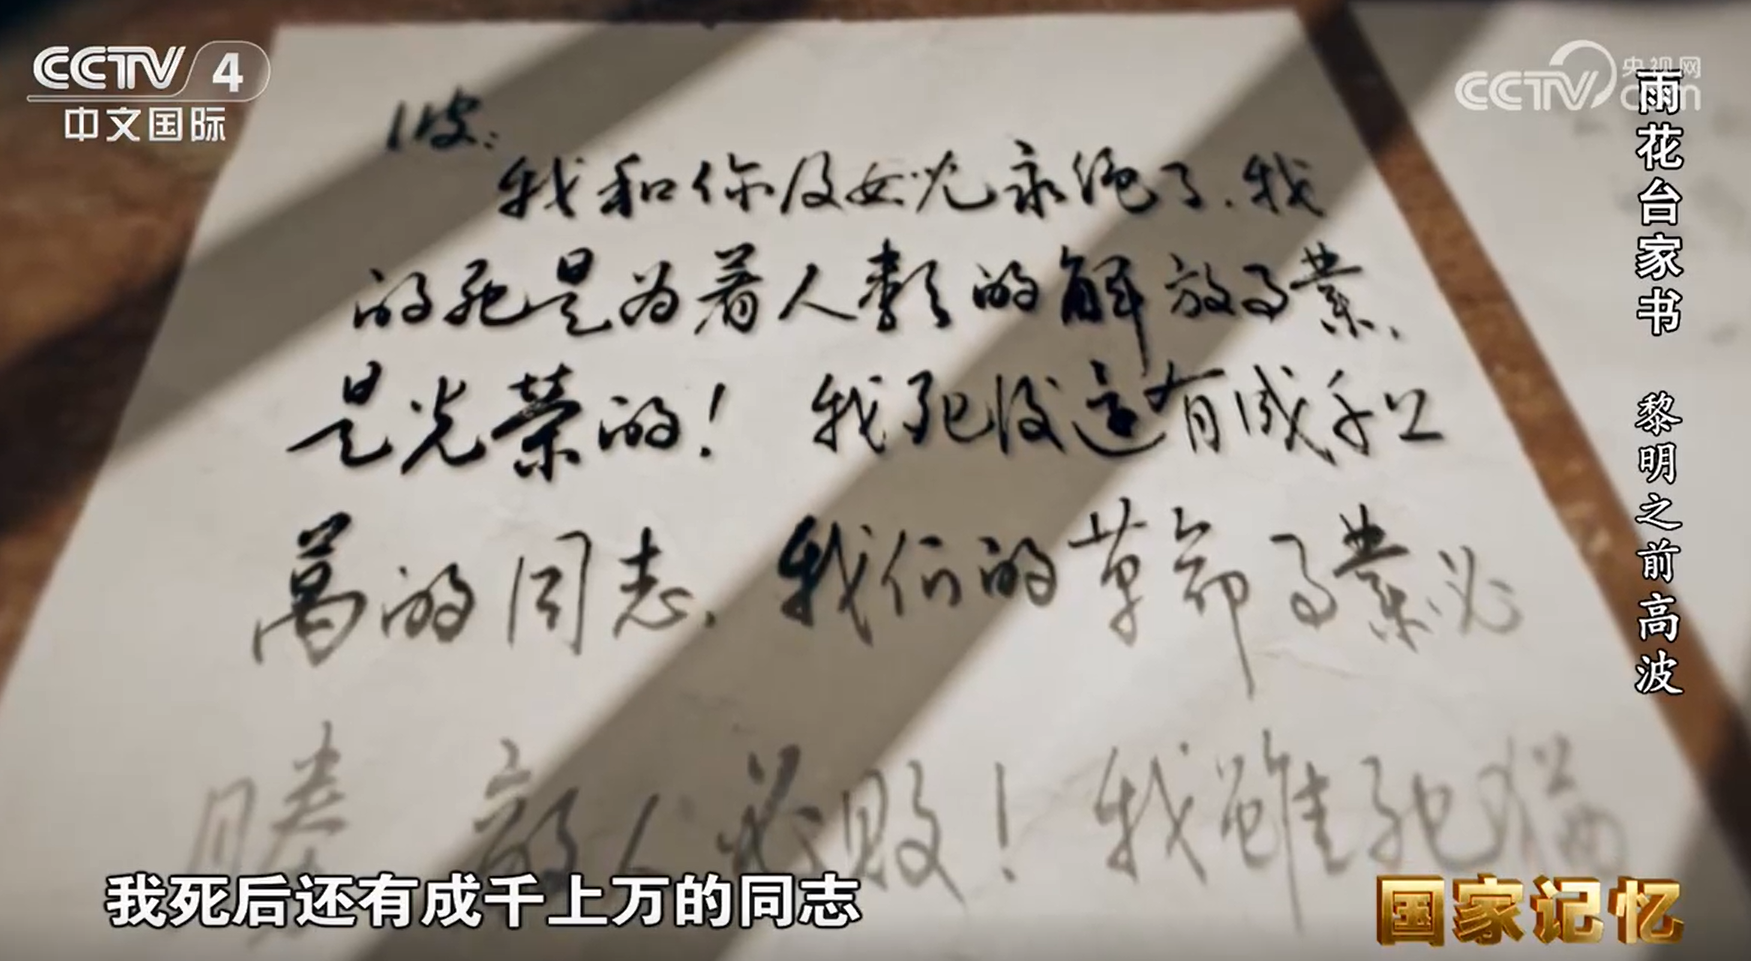 CCTV 4
中文国际
央视网
CCTV com
雨花台家书 黎明之前高波
波:
我和你及女儿永绝了.我
的死是为着人類的解放事業,
是光荣的! 我死後还有成千上
萬的同志,我们的革命事業必
勝 敵人必败! 我雖死猶
我死后还有成千上万的同志
国家记忆